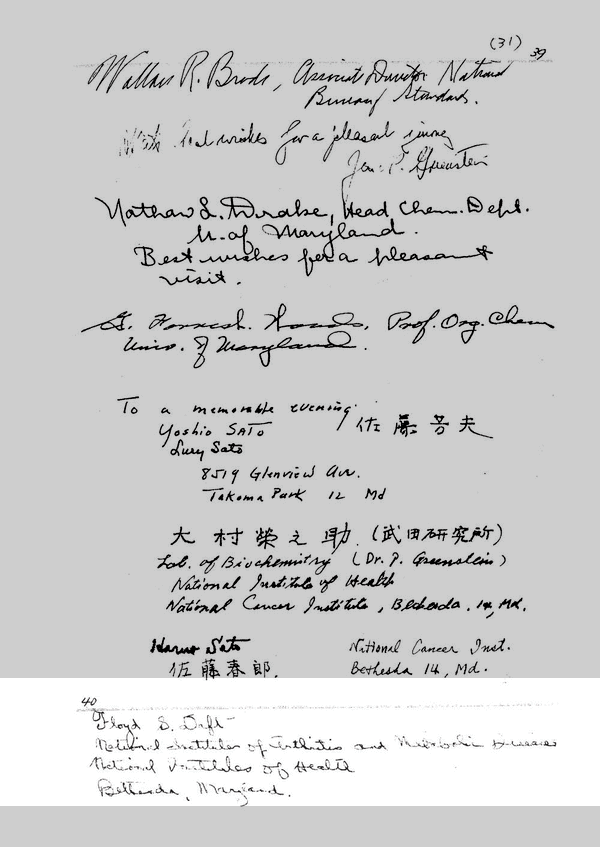 (31) 39
Wallace R. Brode, Associate Director National
Bureau of Standards.
With best wishes for a pleasant journey
Jesse P. Greenstein
Nathan L. Drake, Head Chem. Dept.
U. of Maryland.
Best wishes for a pleasant
visit.
G. Forrest Woods, Prof. Org. Chem
Univ. of Maryland.
To a memorable evening.
Yoshio SATO 佐藤芳夫
Lucy Sato
8519 Glenview Ave.
Takoma Park 12 Md
大村榮之助 (武田研究所)
Lab. of Biochemistry (Dr. P. Greenstein)
National Institute of Health
National Cancer Institute, Bethesda. 14, Md.
Haruo Sato National Cancer Inst.
佐藤春郎. Bethesda 14, Md.
40
Floyd S. Daft
National Institutes of Arthritis and Metabolic Diseases
National Institutes of Health
Bethesda, Maryland.